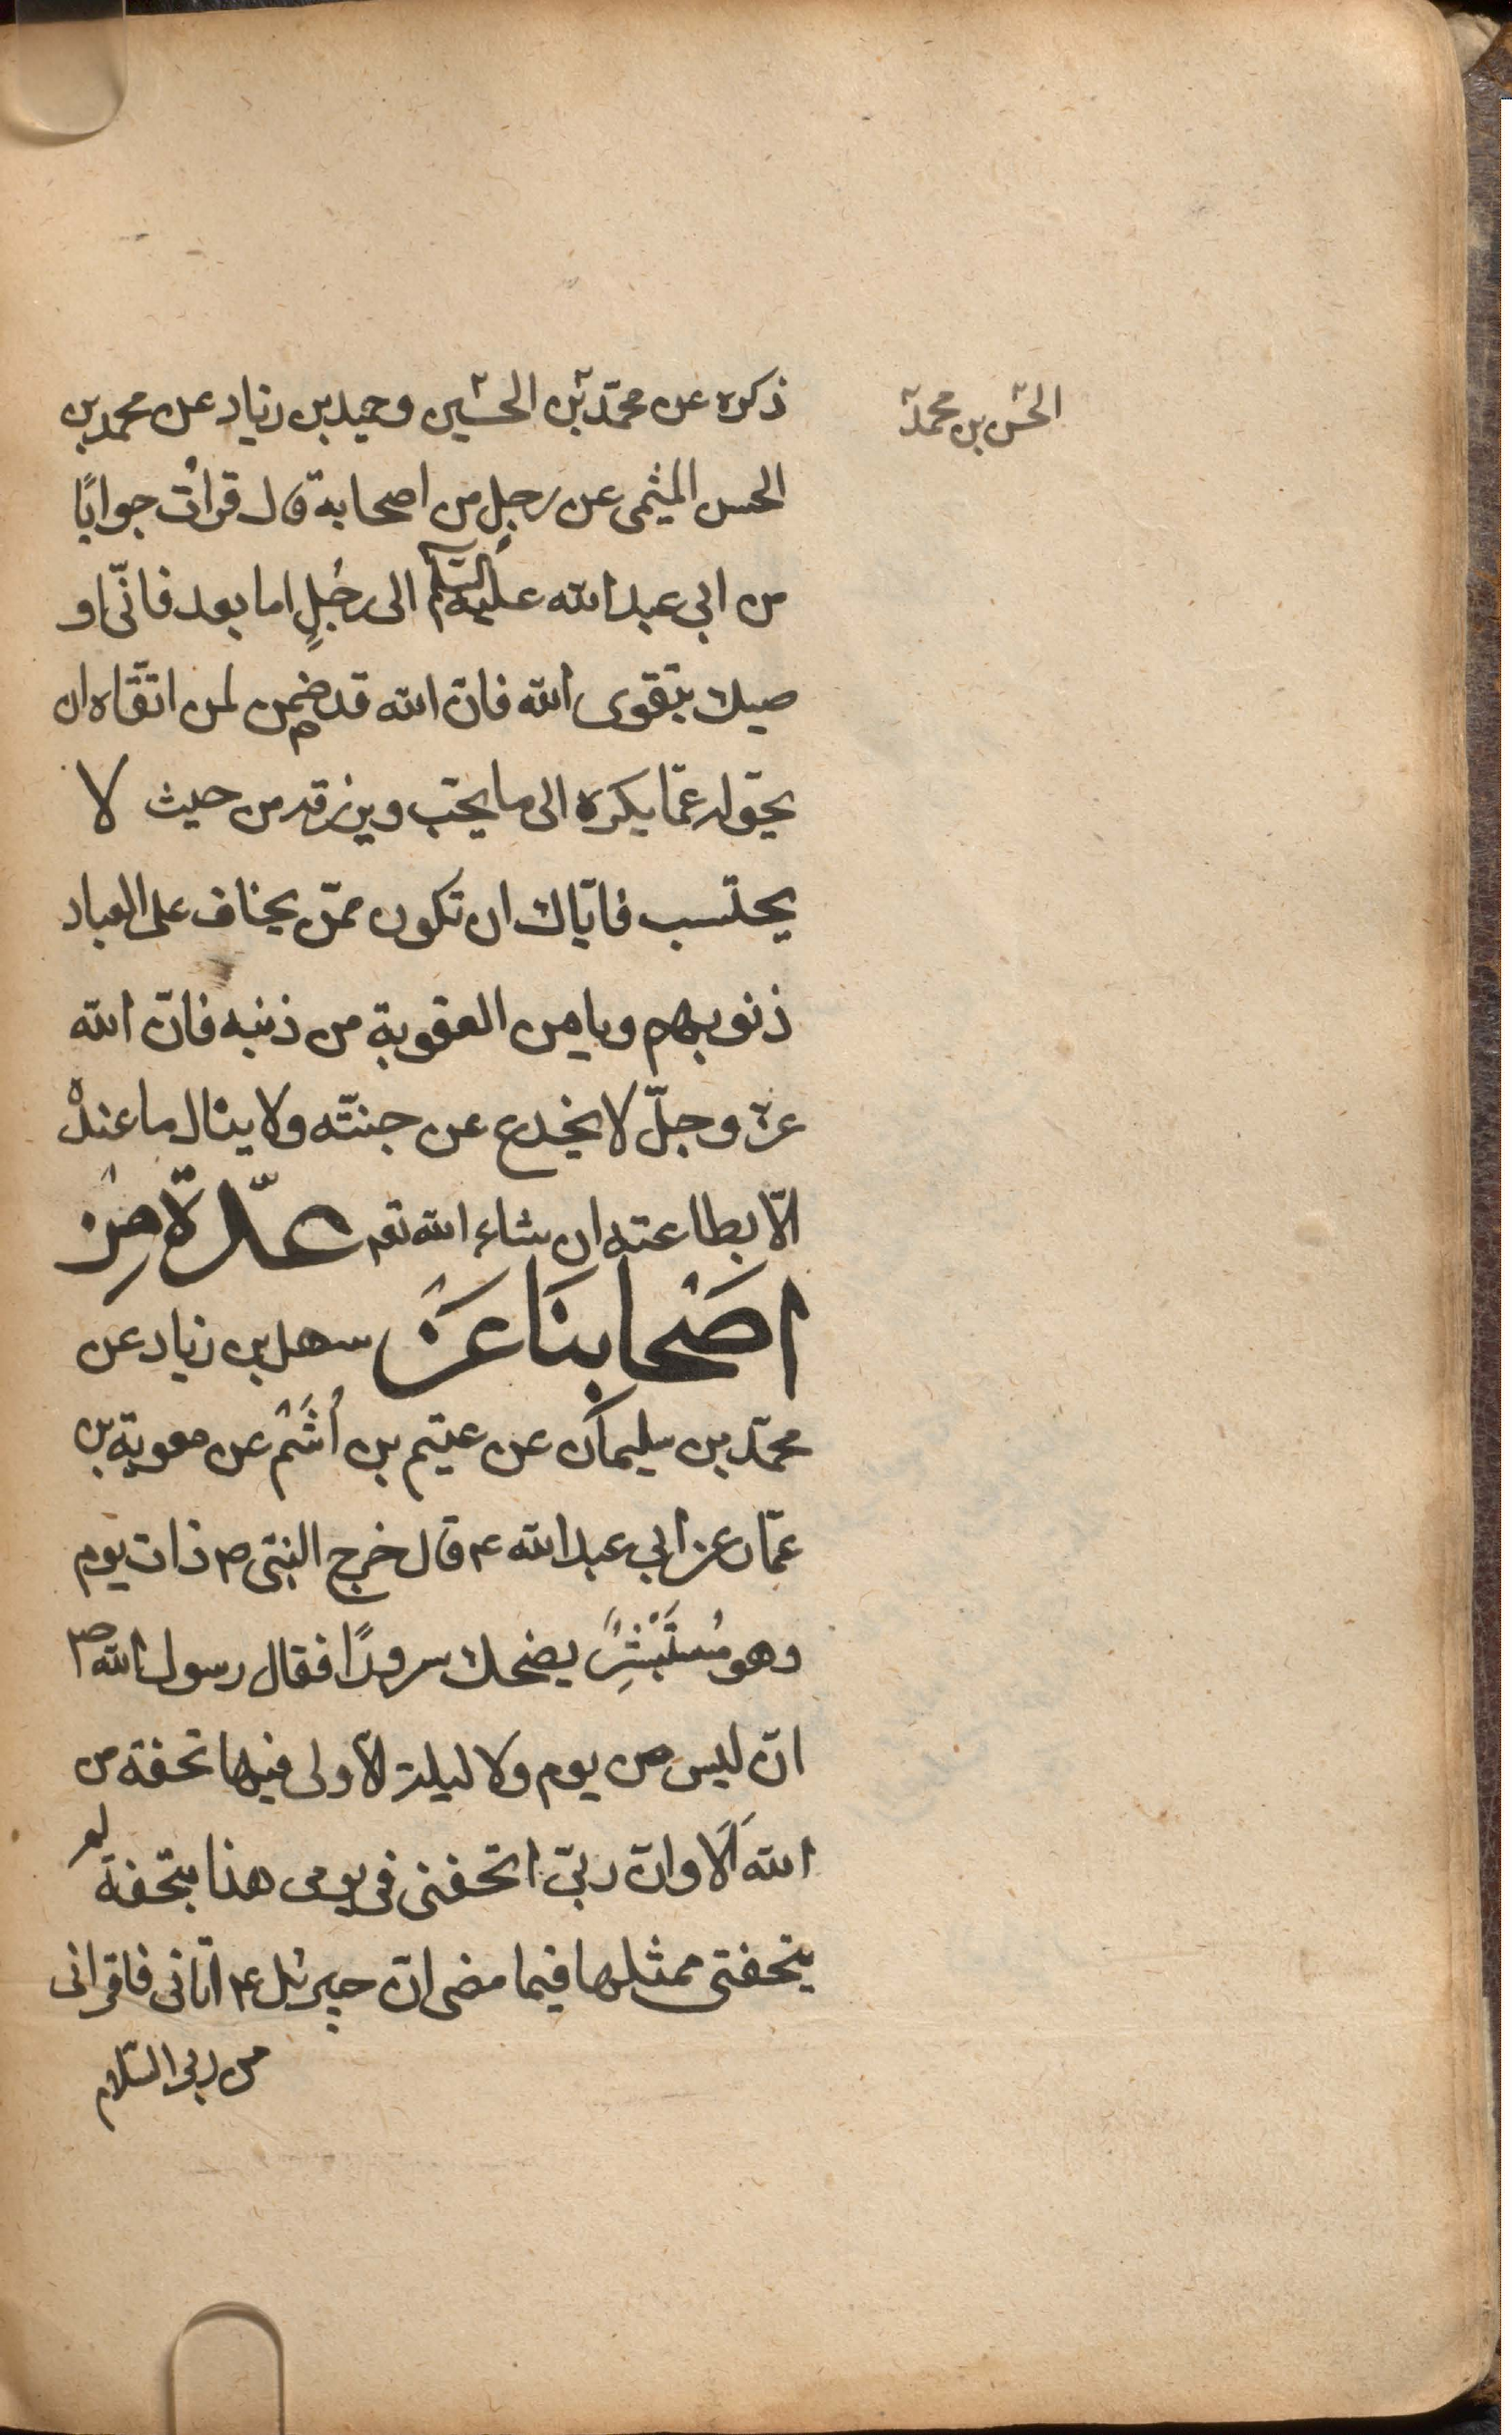 الحسن بن محمد
ذكره عن محمّد بن الحسين وحميد بن زياد عن محمد بن
الحسن الميثمى عن رجل من اصحابه قال قرات جوابًا
من ابى عبد الله عليه السلم الى رجُلٍ اما بعد فانّى او
صيك بتقوى الله فانّ الله قد ضمن لمن اتقاه ان
يحوّله عمّا يكره الى ما يحبّ ويرزقه من حيث لا
يحتسب فايّاك ان تكون ممّن يخاف على العباد
ذنوبهم ويامن العقوبة من ذنبه فانّ الله
عزّ وجلّ لا يخدع عن جنّته ولا ينال ما عنده
الّا بطاعته ان شاء الله تعم عدّة مِن
اصَحابنَا عَن سهل بن زياد عن
محمّد بن سليمان عن عيثم بن أُشَيْم عن معوية بن
عمّار عن ابى عبد الله ع قال خرج النبىّ ص ذات يوم
وهو مُسْتَبْشِرٌ يضحك سرورًا فقال رسول الله ص
انّه ليس من يوم ولا ليلة الا ولى فيها تحفة من
الله اَلَا وانّ ربّى اتحفنى فى يومى هذا بتحفة لم
يتحفنى بمثلها فيما مضى انّ جبرئيل ع اتانى فاقرانى
من ربى السّلام